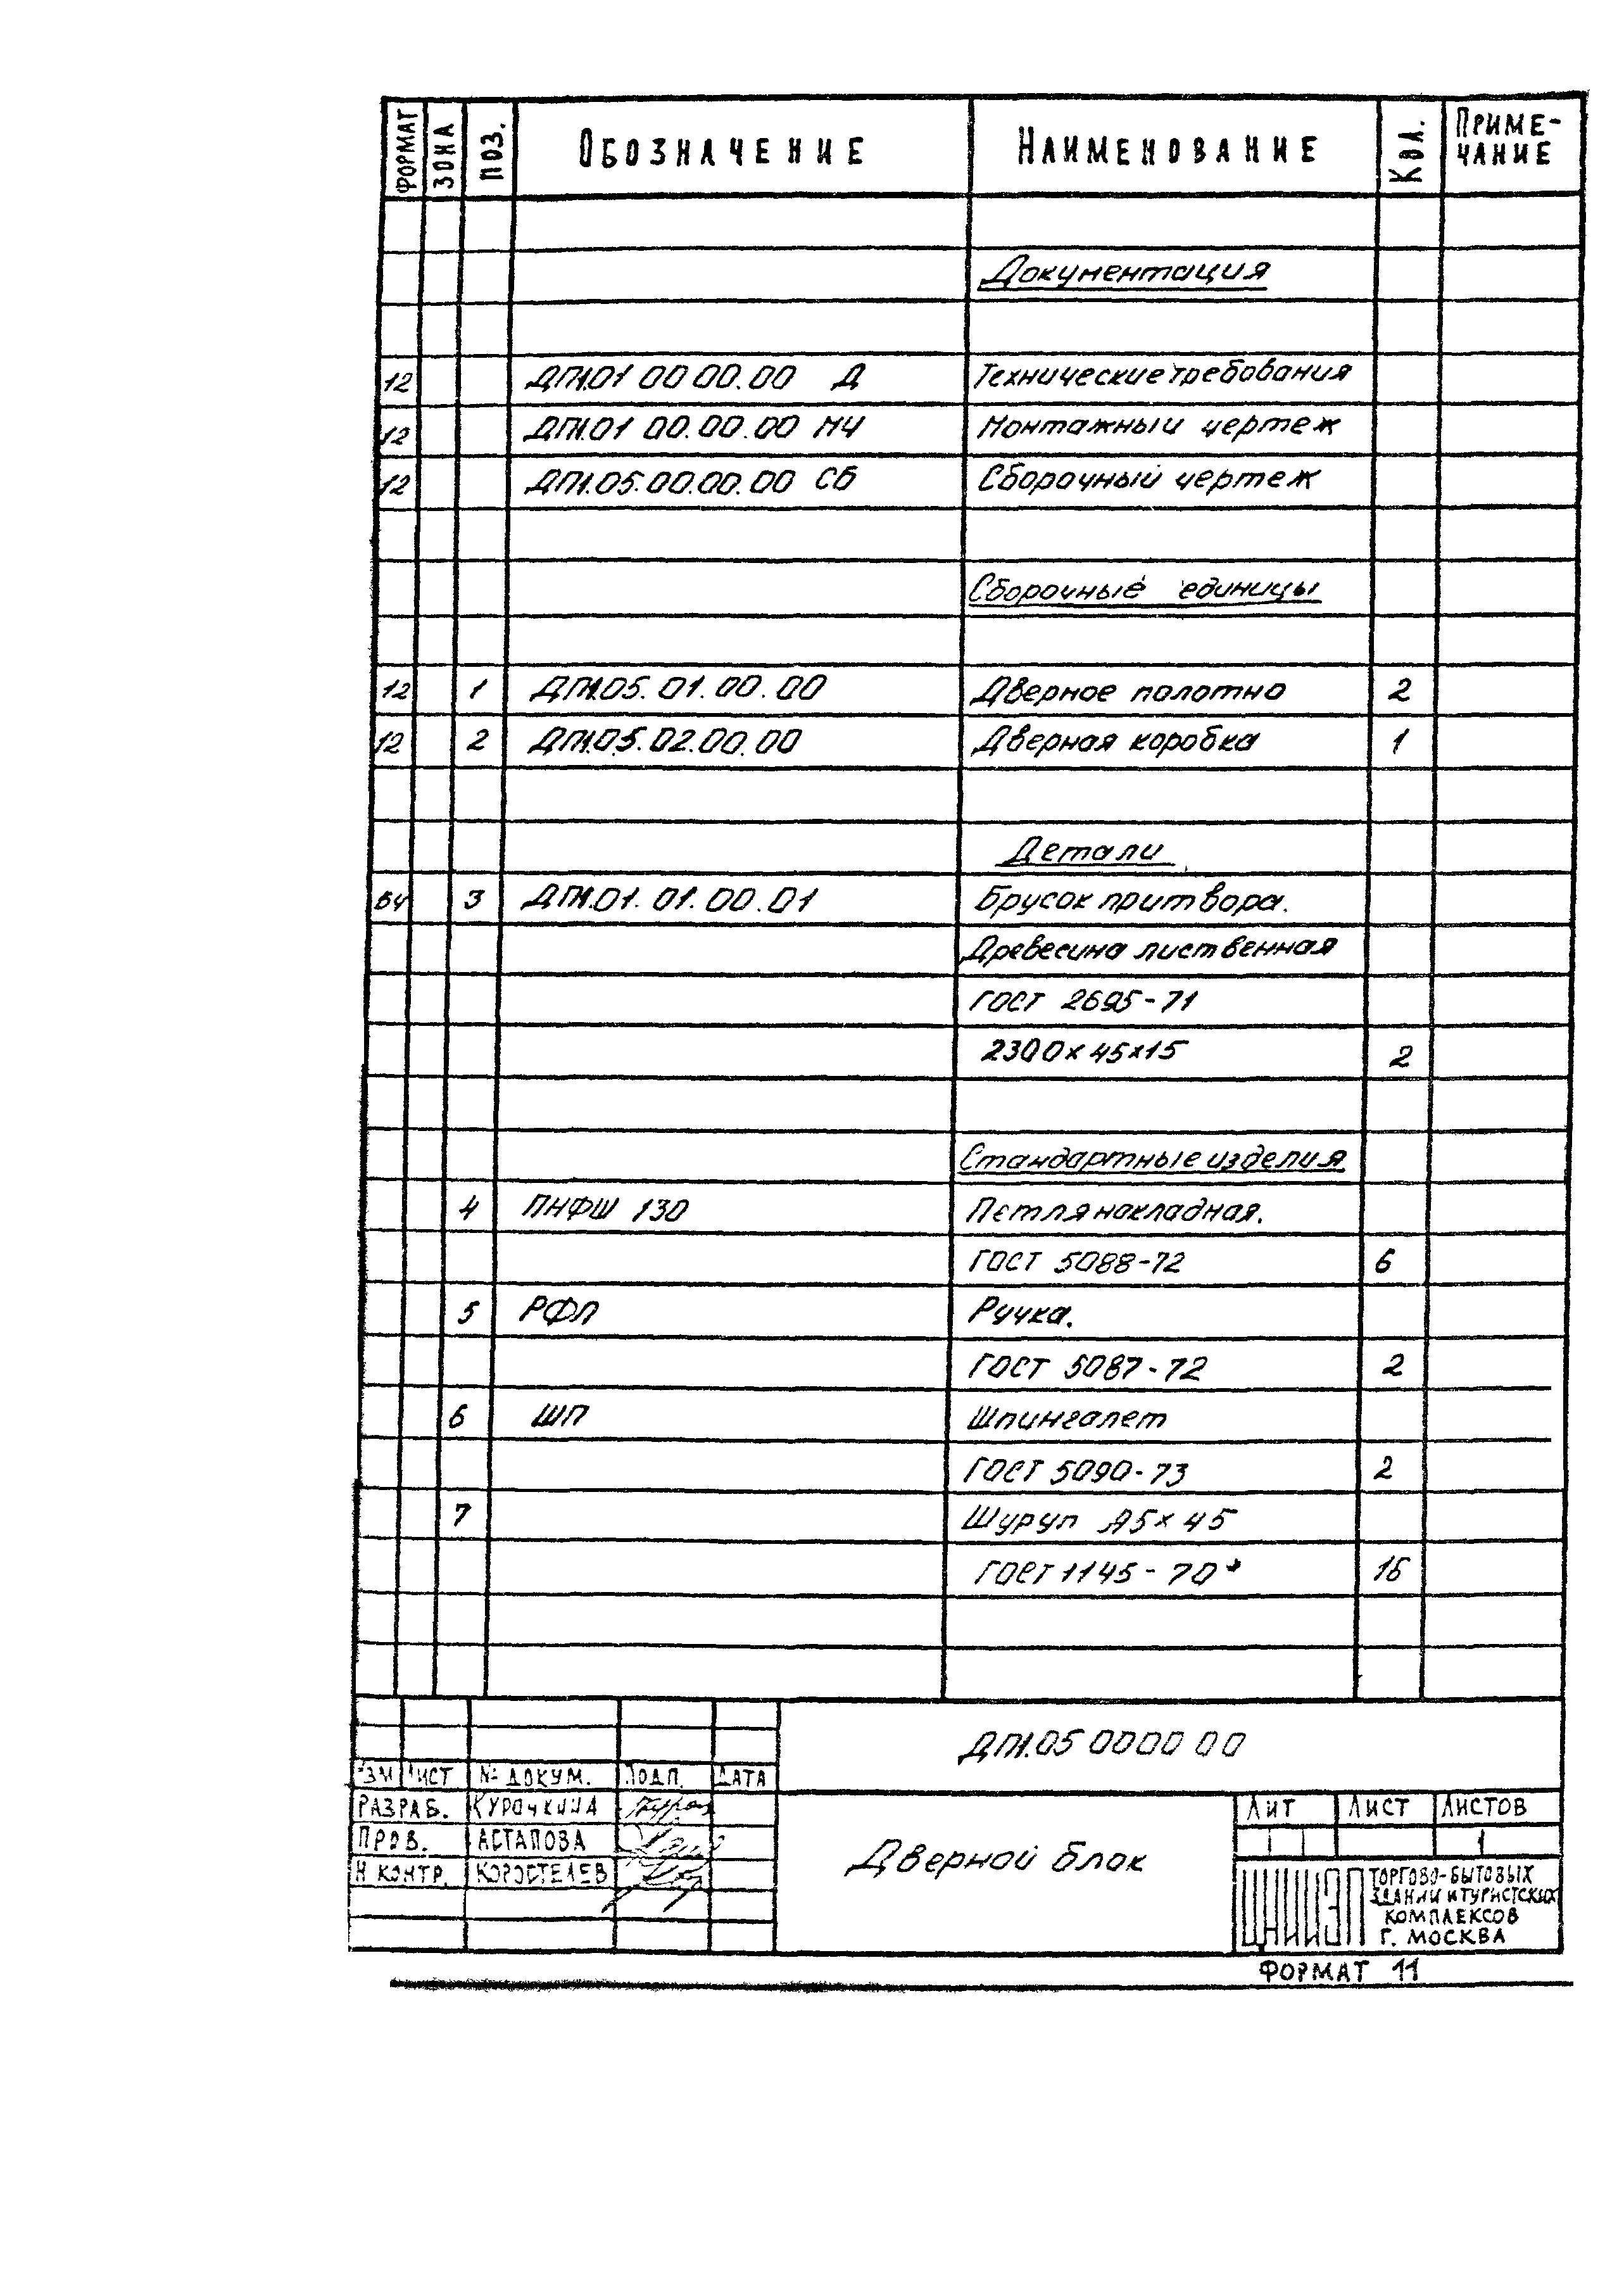 ФОРМАТ ЗОНА ПОЗ. ОБОЗНАЧЕНИЕ НАИМЕНОВАНИЕ КОЛ. ПРИМЕ-
ЧАНИЕ
Документация
12 ДП1.01 00 00.00 Д Технические требования
12 ДП1.01 00.00.00 МЧ Монтажный чертеж
12 ДП1.05.00.00.00 СБ Сборочный чертеж
Сборочные единицы
12 1 ДП1.05.01.00.00 Дверное полотно 2
12 2 ДП1.05.02.00.00 Дверная коробка 1
Детали
БЧ 3 ДП1.01.01.00.01 Брусок притвора.
Древесина лиственная
ГОСТ 2695-71
2300×45×15 2
Стандартные изделия
4 ПНФШ 130 Петля накладная.
ГОСТ 5088-72 6
5 РФЛ Ручка.
ГОСТ 5087-72 2
6 ШП Шпингалет
ГОСТ 5090-73 2
7 Шуруп А5×45
ГОСТ 1145-70* 16
ДП1.05 0000 00
ИЗМ ЛИСТ № ДОКУМ. ПОДП. ДАТА
РАЗРАБ. КУРОЧКИНА
ПРОВ. АСТАПОВА
Н КОНТР. КОРОСТЕЛЕВ
Дверной блок
ЛИТ ЛИСТ ЛИСТОВ
1
ЦНИИЭП ТОРГОВО-БЫТОВЫХ
ЗДАНИЙ И ТУРИСТСКИХ
КОМПЛЕКСОВ
Г. МОСКВА
ФОРМАТ 11